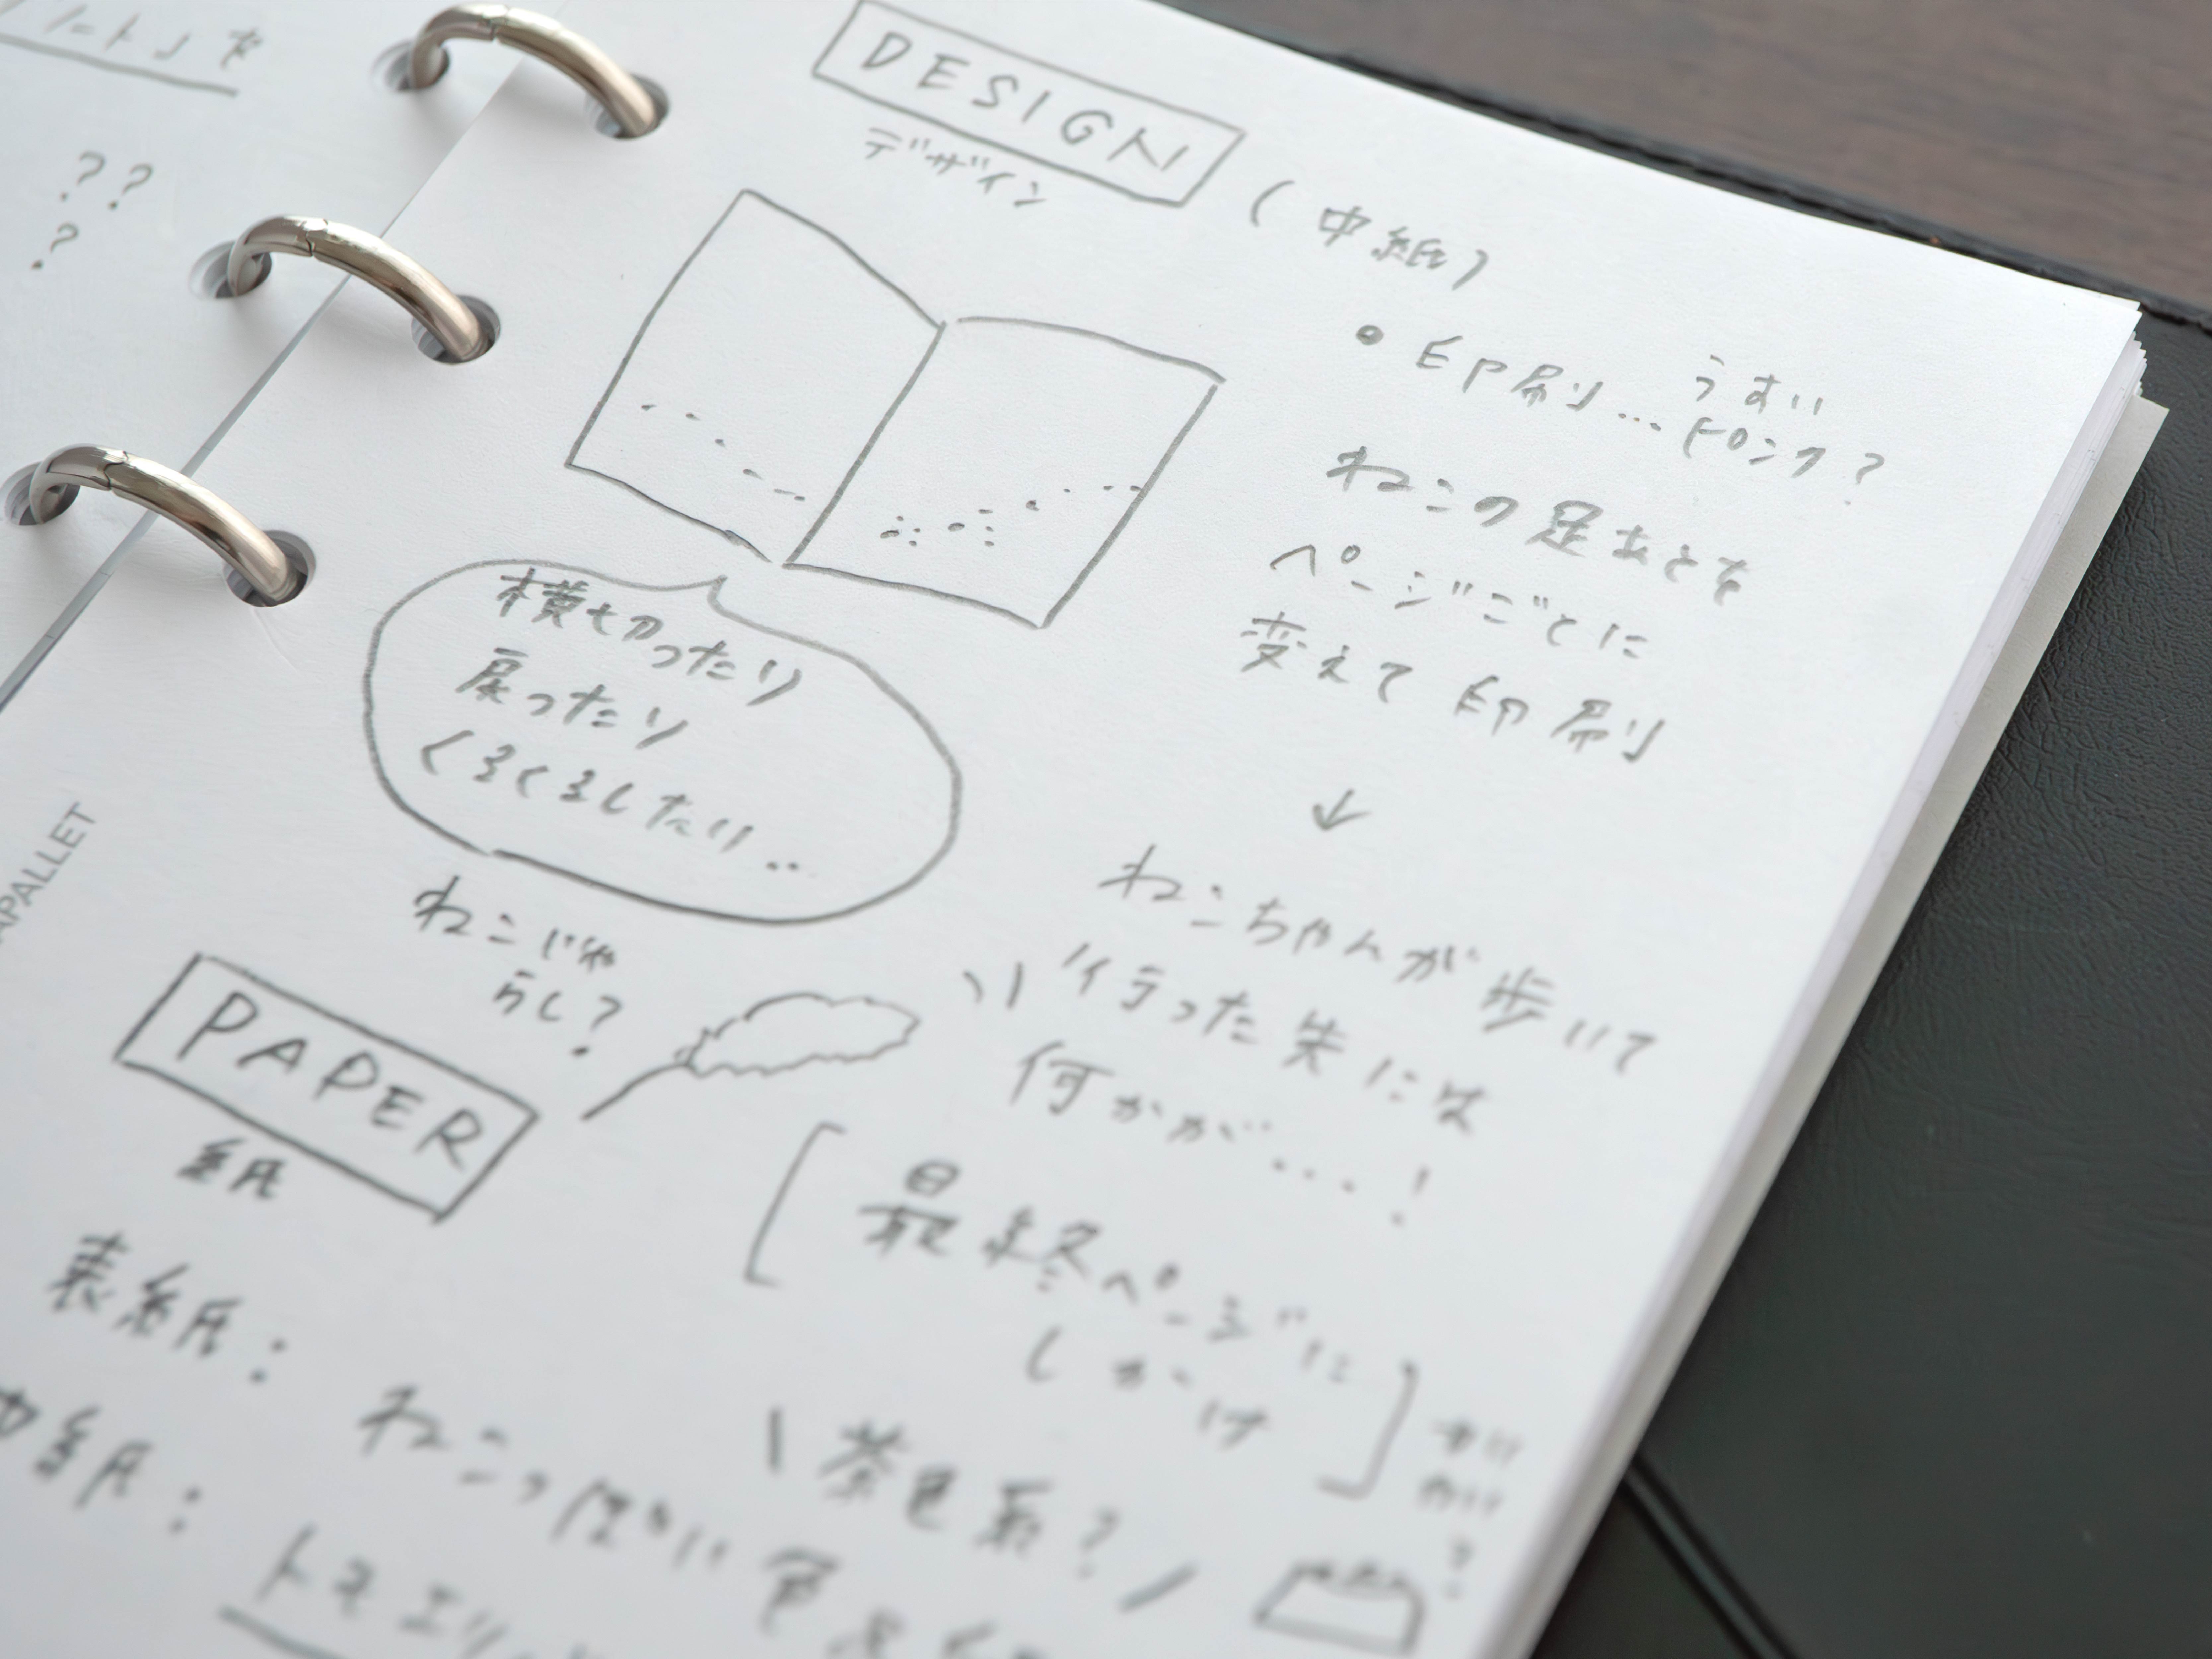 ノートJを
??
?
APALLET
DESIGN
デザイン
(中紙)
• 印刷… うすい
ピンク?
ねこの足あとを
ページごとに
変えて印刷
↓
ねこちゃんが歩いて
行った先には
何かが…!
[最終ページに
しかけ]
カリ
カリ
?
横切ったり
戻ったり
くるくるしたり..
ねこじゃ
らし?
PAPER
紙
表紙:
ねこっぽい色
\茶色系?/
中紙:
トモエリ